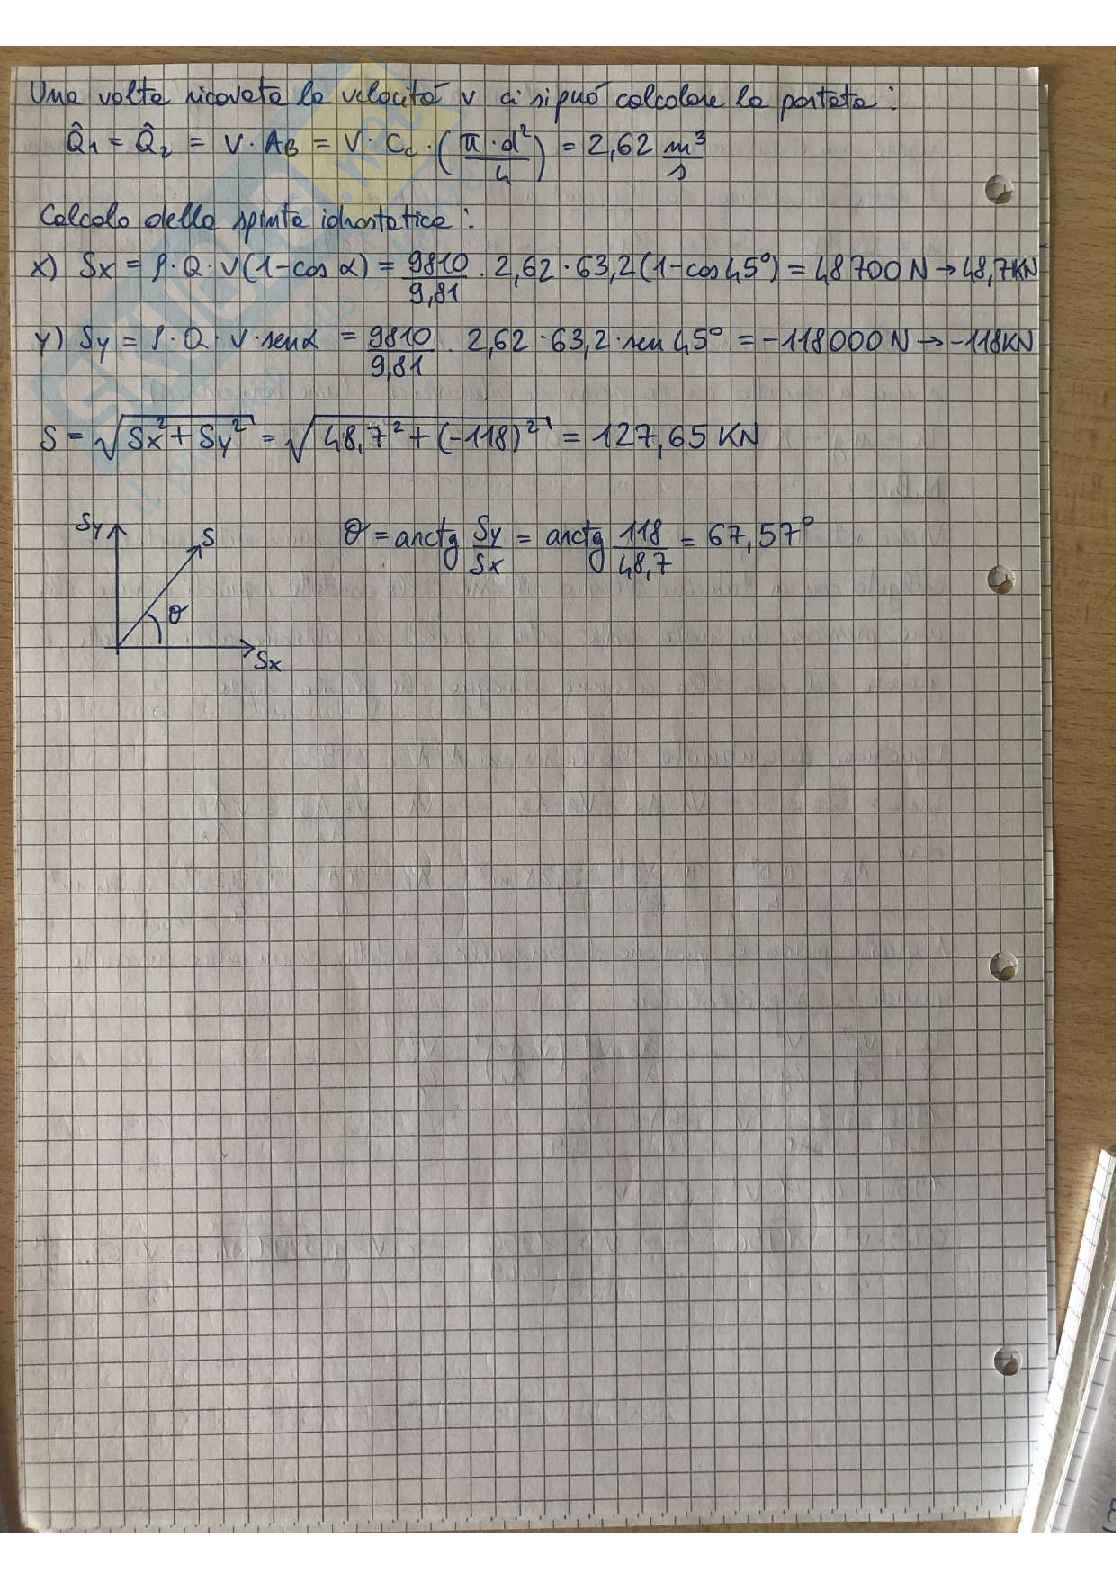 Una volta ricavata la velocità v ci si può calcolare la portata:
Q̂1 = Q̂2 = V · AB = V · Cc · (π · d² / 4) = 2,62 m³/s
Calcolo della spinta idrostatica:
x) Sx = ρ · Q · V (1 - cos α) = 9810/9,81 · 2,62 · 63,2 (1 - cos 45°) = 48 700 N → 48,7 KN
y) Sy = ρ · Q · V · sen α = 9810/9,81 · 2,62 · 63,2 · sen 45° = -118 000 N → -118 KN
S = √(Sx² + Sy²) = √(48,7² + (-118)²) = 127,65 KN
Sy S θ Sx
θ = arctg Sy/Sx = arctg 118/48,7 = 67,57°